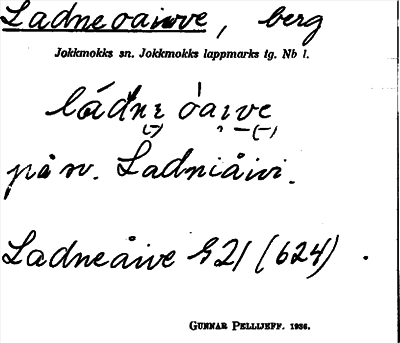 Ladneoaivve, berg
Jokkmokks sn. Jokkmokks lappmarks tg. Nb l.
på sv. Ladniåivi.
Ladneåive G21 (624).
GUNNAR PELLIJEFF. 1936.